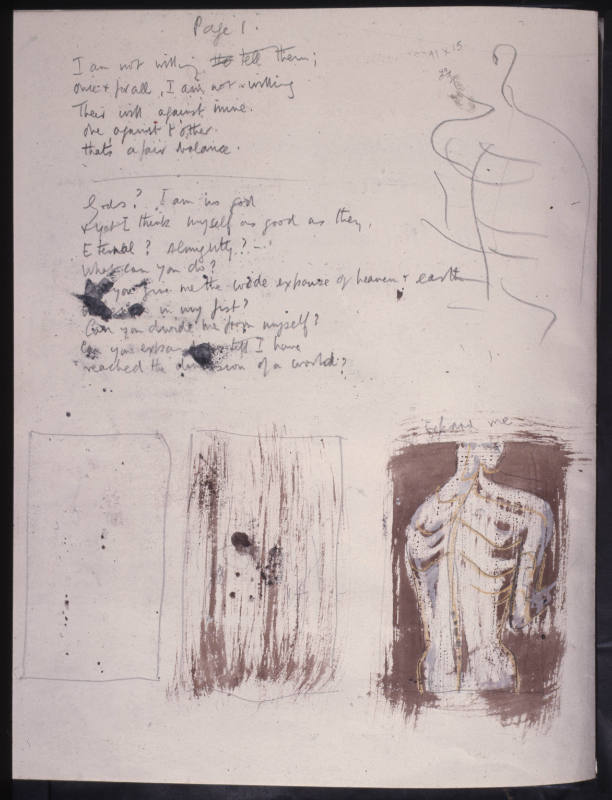 Page 1.
I am not willing to tell them;
once & for all, I am not willing
Their will against mine.
one against t' other.
thats a fair balance.
41 x 15
Gods? I am no god
& yet I think myself as good as they.
Eternal? Almighty? -
What can you do?
you give me the wide expanse of heaven & earth
in my fist?
Can you divide me from myself?
Can you expand till I have
reached the dimension of a world?
expand me